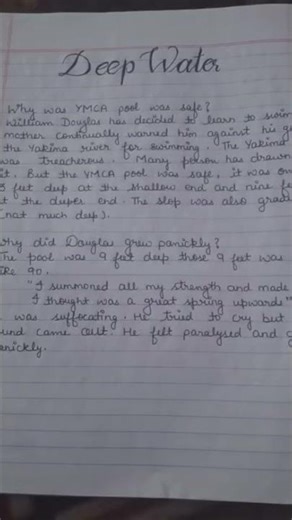 Deep Water
Why was YMCA pool was safe?
William Douglas has decided to learn to swim
mother continually warned him against his go
the Yakima river for swimming. The Yakima
was treacherous. Many person has drawn
it. But the YMCA pool was safe, it was on
3 feet deep at the shallow end and nine fe
t the deeper end. The slop was also grad
(not much deep).
Why did Douglas grew panickly?
The pool was 9 feet deep those 9 feet was
like 90.
"I summoned all my strength and made
I thought was a great spring upwards"
was suffocating. He tried to cry but
und came out. He felt paralysed and g
anickly.